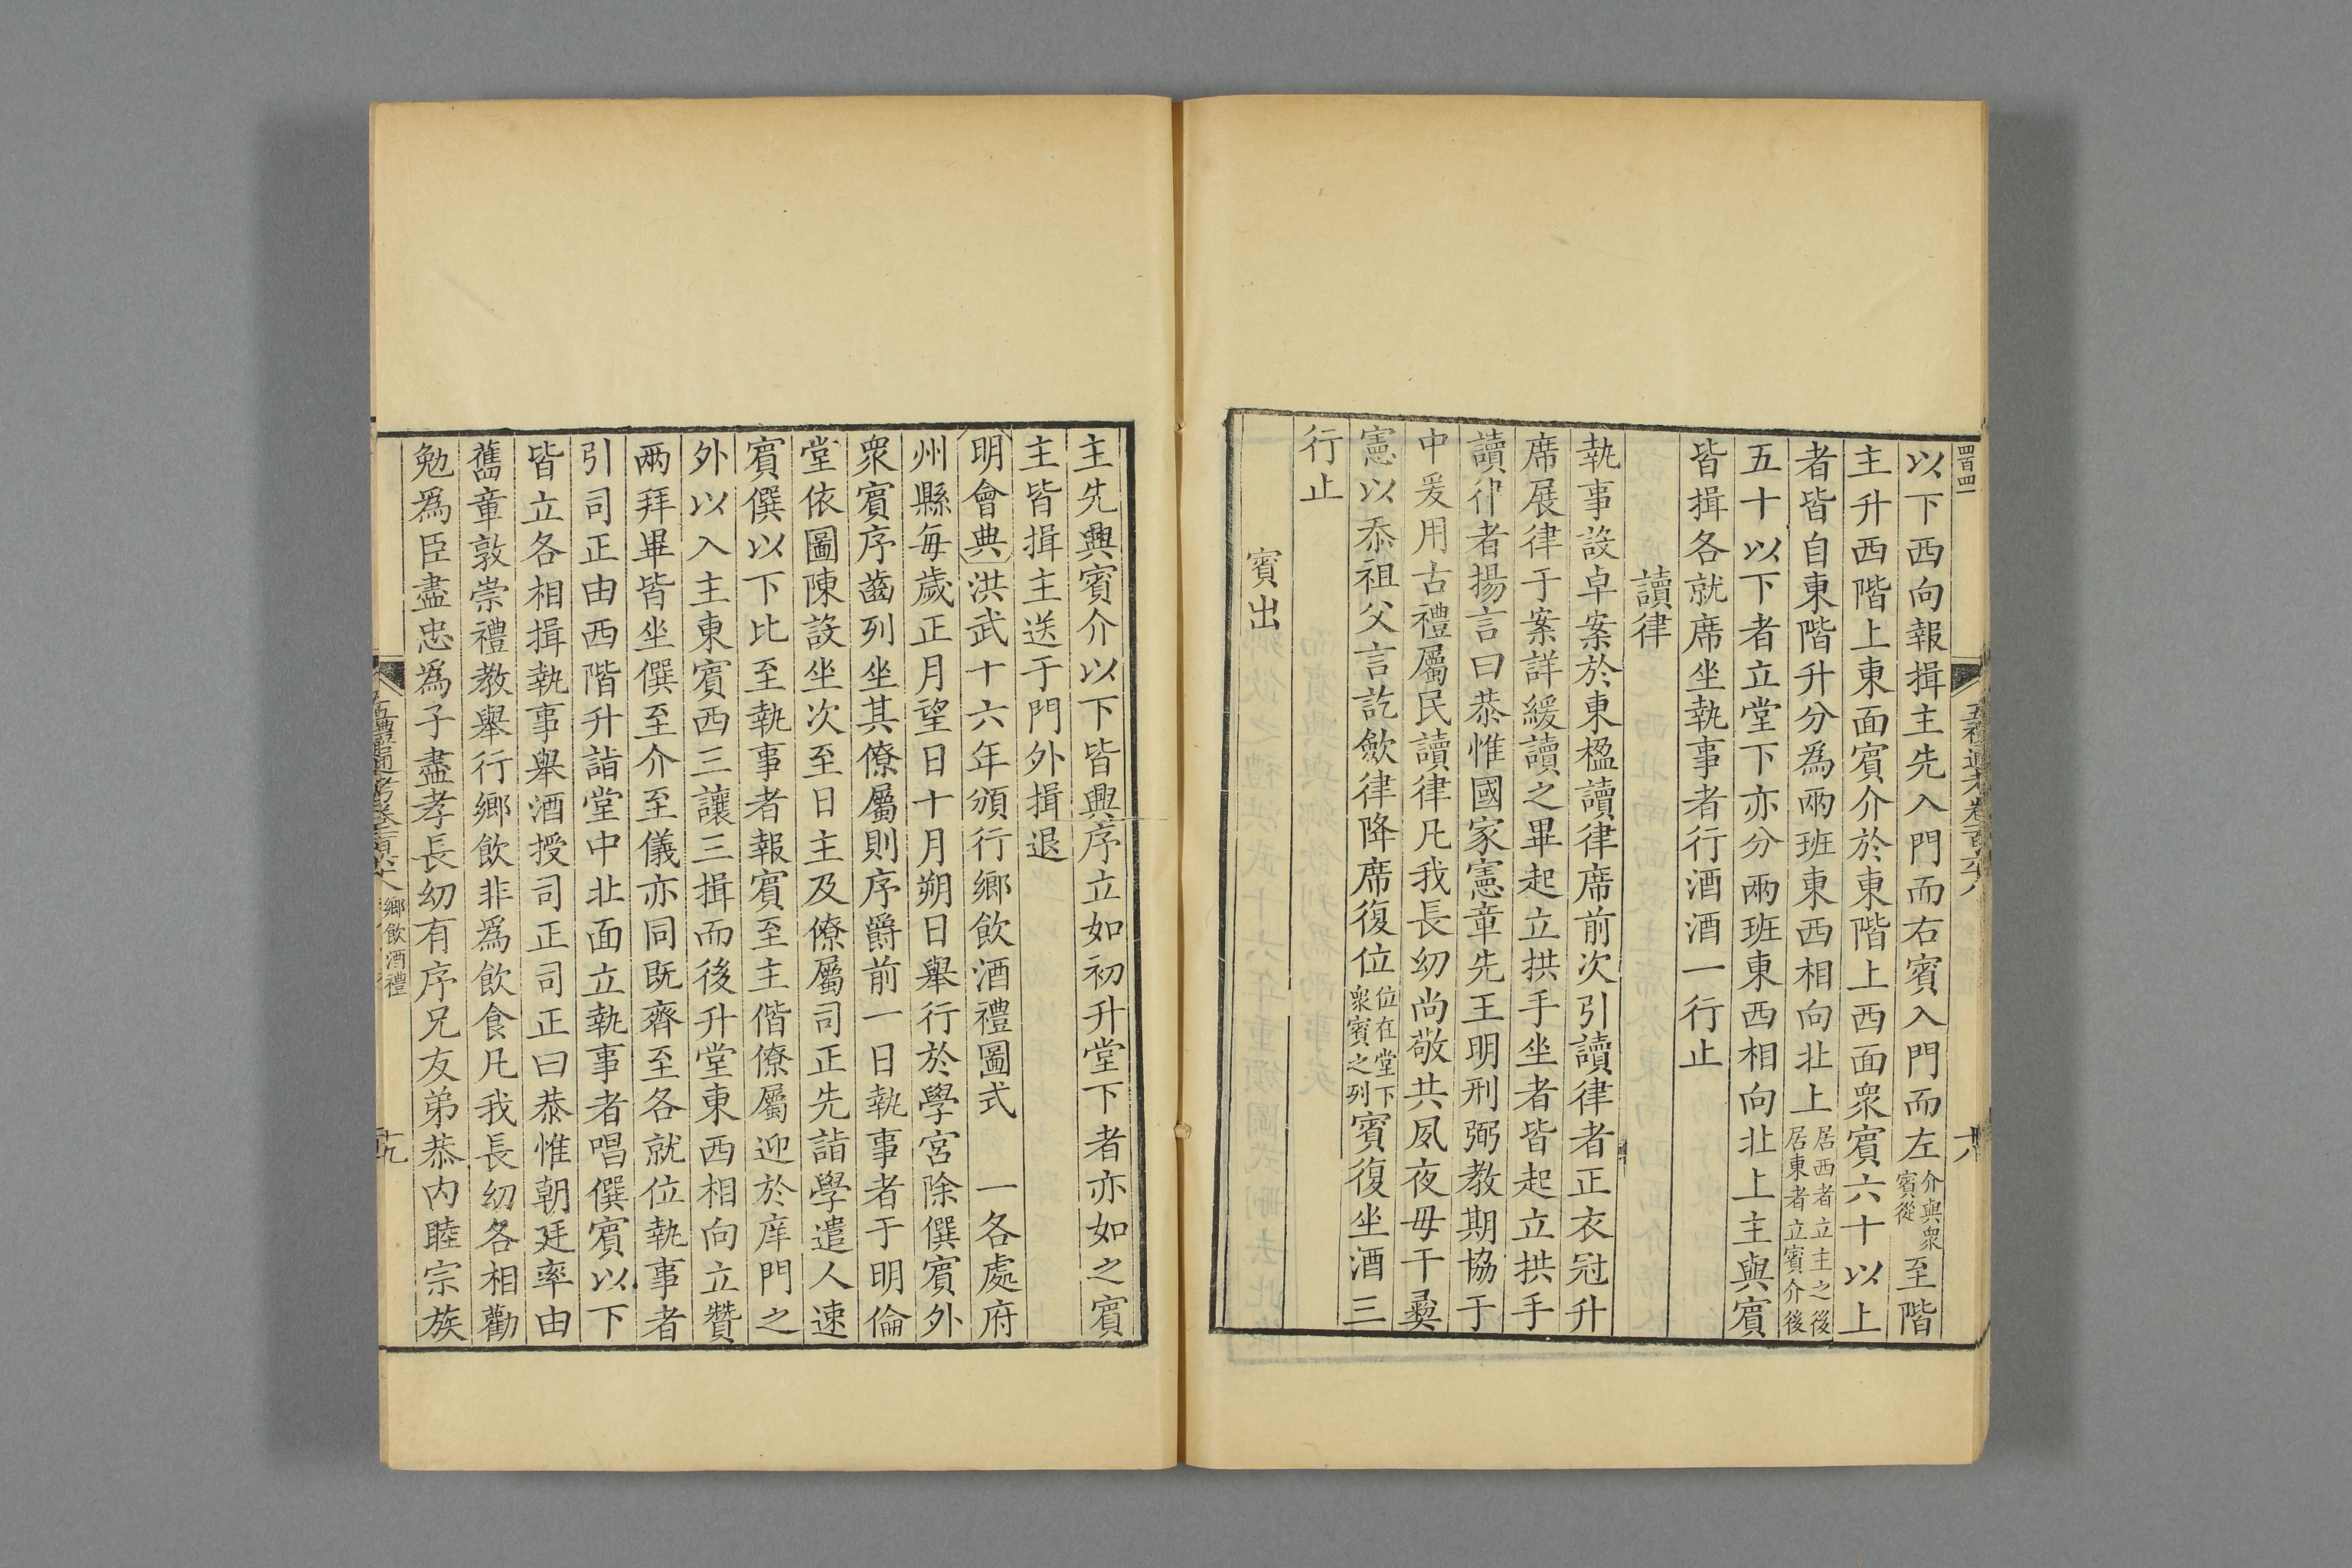 以下西向報揖主先入門而右賓入門而左介與衆賓從至階
主升西階上東面賓介於東階上西面衆賓六十以上
者皆自東階升分爲兩班東西相向北上居西者立主之後居東者立賓介後
五十以下者立堂下亦分兩班東西相向北上主與賓
皆揖各就席坐執事者行酒酒一行止
讀律
執事設卓案於東楹讀律席前次引讀律者正衣冠升
席展律于案詳緩讀之畢起立拱手坐者皆起立拱手
讀律者揚言曰恭惟國家憲章先王明刑弼教期協于
中爰用古禮屬民讀律凡我長幼尚敬共夙夜毋干彛
憲以忝祖父言訖斂律降席復位位在堂下衆賓之列賓復坐酒三
行止
賓出
主先興賓介以下皆興序立如初升堂下者亦如之賓
主皆揖主送于門外揖退
明會典洪武十六年頒行鄉飲酒禮圖式　一各處府
州縣每歲正月望日十月朔日舉行於學宮除僎賓外
衆賓序齒列坐其僚屬則序爵前一日執事者于明倫
堂依圖陳設坐次至日主及僚屬司正先詣學遣人速
賓僎以下比至執事者報賓至主偕僚屬迎於庠門之
外以入主東賓西三讓三揖而後升堂東西相向立贊
兩拜畢皆坐僎至介至儀亦同既齊至各就位執事者
引司正由西階升詣堂中北面立執事者唱僎賓以下
皆立各相揖執事舉酒授司正司正曰恭惟朝廷率由
舊章敦崇禮教舉行鄉飲非爲飲食凡我長幼各相勸
勉爲臣盡忠爲子盡孝長幼有序兄友弟恭内睦宗族
鄉飲酒禮